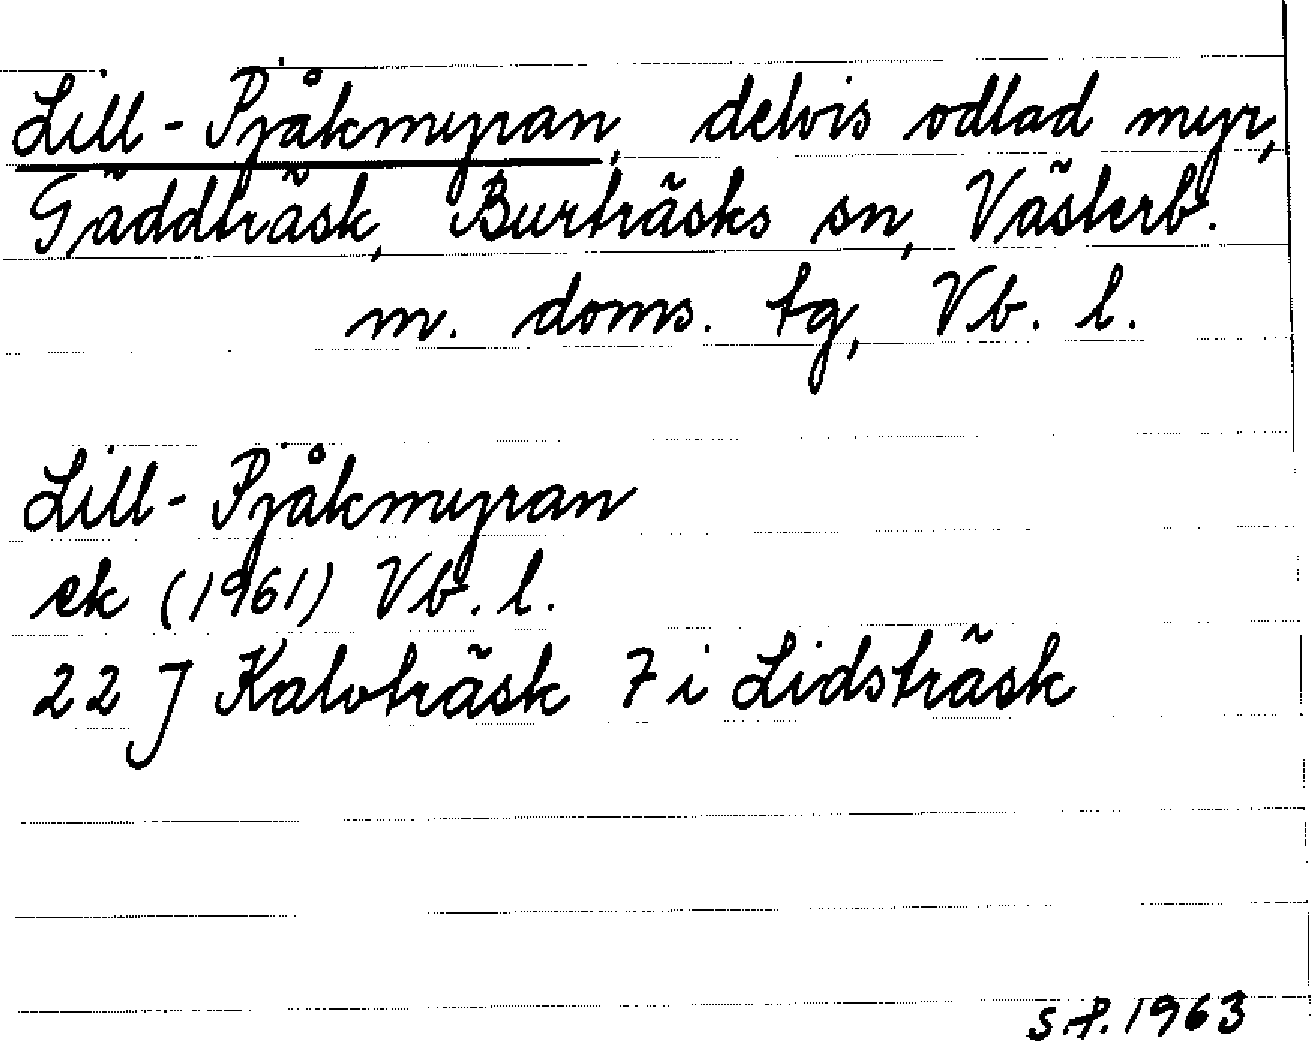 Lill-Pjåkmyran, delvis odlad myr,
Gäddträsk, Burträsks sn, Västerb.
m. doms. tg, Vb. l.
Lill-Pjåkmyran
ek (1961) Vb. l.
22 J Kalvträsk 7 i Lidsträsk
S.P. 1963